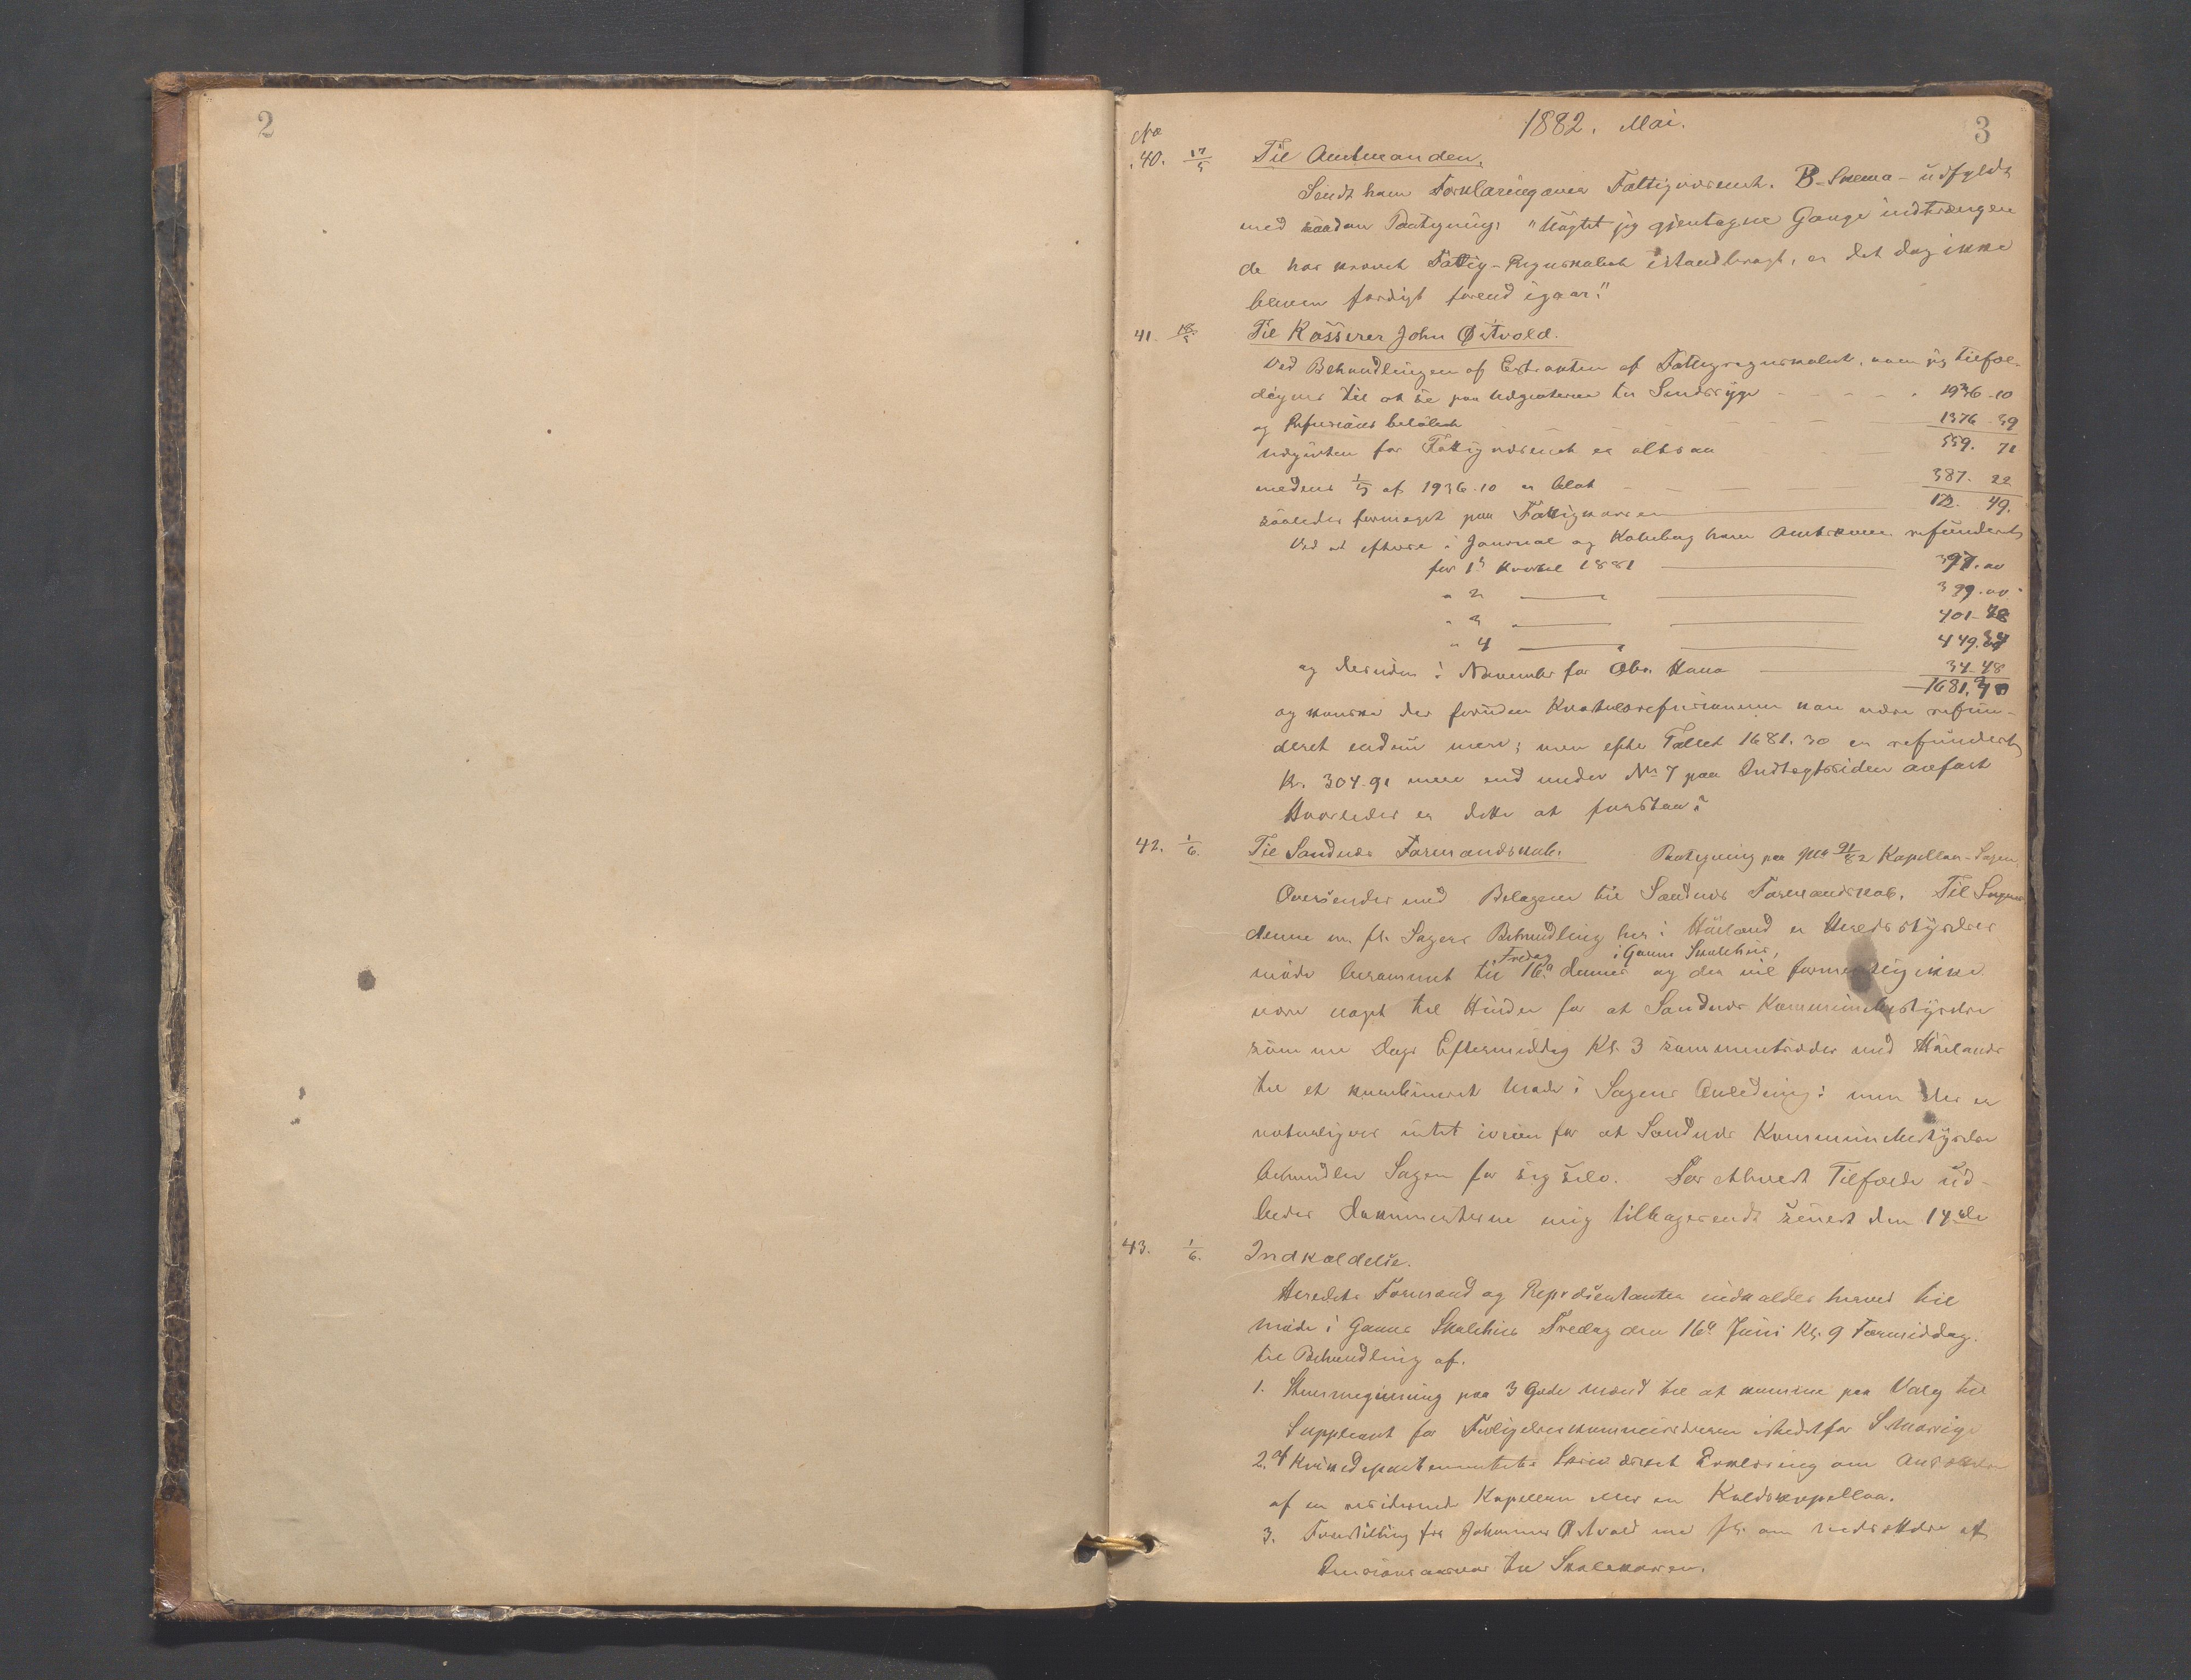 2
1882. Mai.
3
No
40. 17/5 Til Amtmanden.
Sendt ham Forklaring over Fattigvæsenet. B-Skema-udfyldt
med saadan Paategning: "Uagtet jeg gjentagne Gange indtrængen
de har krævet Fattig-Regnskabet istandbragt, er det dog ikke
bleven færdigt førend igaar."
41. 18/5 Til Kasserer John Østvold.
Ved Behandlingen af Extrakten af Fattigregnskabet, kom jeg tilfæl-
digvis til at se paa Udgifterne til Sindssyge 1936-10
og Refusions beløbet 1376-39
Udgiften for Fattigvæsenet er altsaa 559. 71
medens 1/5 af 1936.10 er blot 387. 22
saaledes formeget paa Fattigkassen 172. 49.
Ved at eftersee i Journal og Kopibog har Amtskassen refunderet
for 1ste Kvartal 1881 397.00
" 2 399.00
" 3 401-48
" 4 449.34
og desuden i November for Abr. Hana 34-48
1681.30
og kanske der foruden Kvartalsrefusionerne kan være refun-
deret endnu mere; men efter Tallet 1681.30 er refunderet
Kr. 304.91 mere end under No 7 paa Indtægtssiden anført
Hvorledes er dette at forstaa?
42. 1/6. Til Sandnes Formandskab. Paategning paa No 91/82 Kapellan-Sagen
Oversendes med Bilagene til Sandnes Formandskab. Til Sagens
denne m. fl. Sagers Behandling her i Høiland er Herredsstyrelses
Fredag i Ganns Skolehus,
møde berammet til 16de dennes og der vil formentlig ikke
være noget til Hinder for at Sandnes Kommunebestyrelse
samme Dags Eftermiddag Kl. 3 sammentræder med Høilands
til et kombineret Møde i Sagens Anledning: men der er
naturligvis intet iveien for at Sandnes Kommunebestyrelse
behandler Sagen for sig selv. I ethvert Tilfælde ud-
bedes Dokumenterne mig tilbagesendt senest den 14de
43. 1/6. Indkaldelse.
Herredets Formænd og Repræsentanter indkaldes herved til
Møde i Ganns Skolehus Fredag den 16de Juni Kl. 9 Formiddag.
til Behandling af.
1. paa 3 Gode Mænd til at komme paa Valg til
Suppleant for Forligelseskommissæren istedetfor
2. Af Kirkedepartementets Erklæring om Ansættelse
af en residerende Kapellan eller en Kaldskapellan.
3. Forestilling fra Johannes Østvold med fl. om nedsættelse af
til Skolekassen.